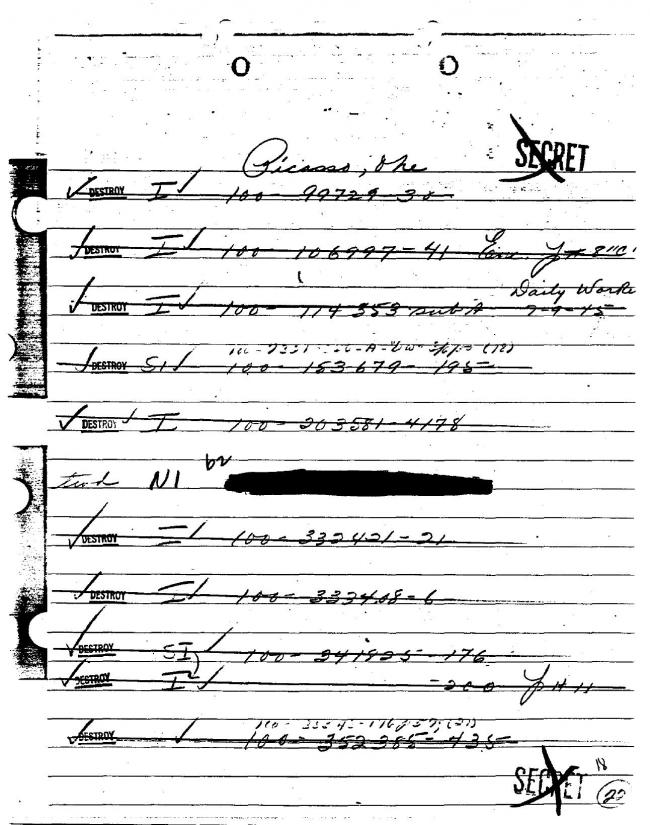 SECRET
Picasso, the
DESTROY I 100-99729-30
DESTROY I 100-106997-41
DESTROY I 100-114353 sub A Daily Worke 7-9-45
DESTROY SI 100-153679-195
DESTROY I 100-203581-4178
NI b2
DESTROY I 100-332421-21
DESTROY I 100-333408-6
DESTROY SI 100-341925-176
DESTROY I -200
DESTROY 100-352385-435
SECRET 18
22